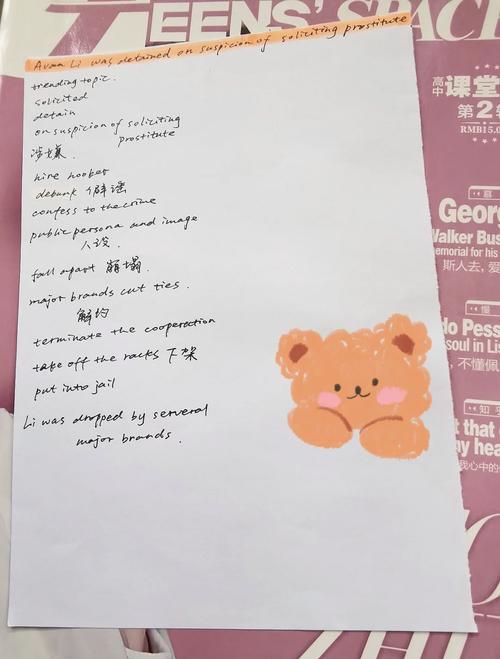 TEENS' SPACE
Avan Li was detained on suspicion of soliciting prostitute
trending topic.
solicited
detain
on suspicion of soliciting
prostitute
涉嫌
hire hooker
debunk 辟谣
confess to the crime
public persona and image
人设.
fall apart 崩塌.
major brands cut ties.
解约
terminate the cooperation
take off the racks 下架
put into jail
Li was dropped by serveral
major brands.
高中
课堂
第2辑
RMB15.0
George
Walker Bus
memorial for his
斯人去，爱
do Pess
soul in Lis
，不懂佩
知
t that
my hea
我心中的